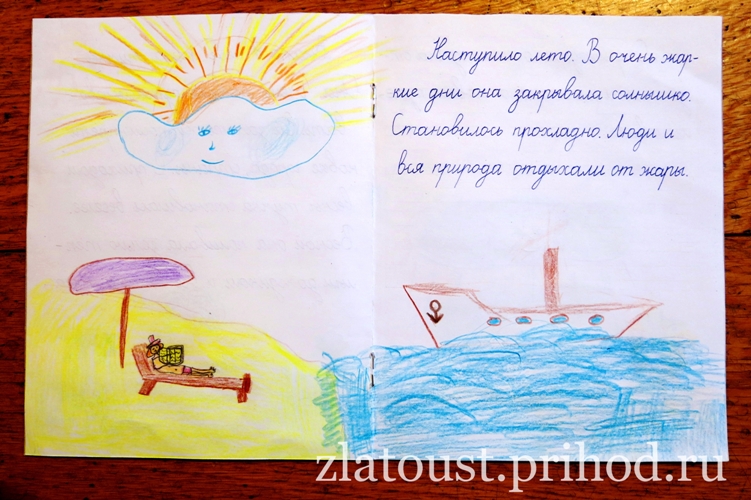 Наступило лето. В очень жар-
кие дни она закрывала солнышко.
Становилось прохладно. Люди и
вся природа отдыхали от жары.
zlatoust.prihod.ru